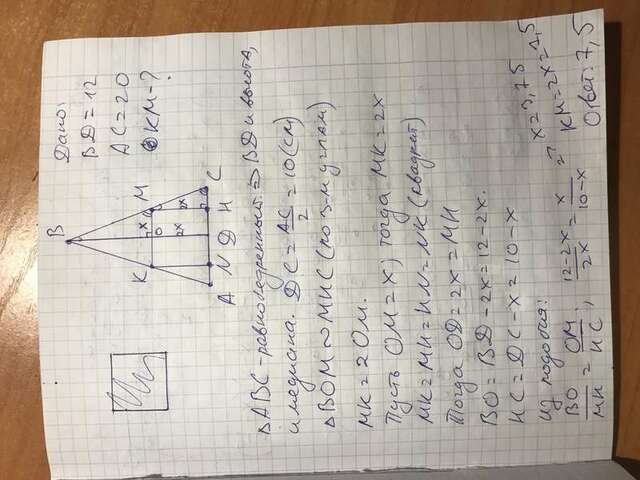 B
Дано:
BD=12
AC=20
KM-?
K
x
M
O
2x
2x
A
N
D
H
C
△ABC-равнобедренный. ⇒ BD и высота,
и медиана. DC = AC/2 = 10(см)
△BOM ∾ MHC (по 3-м углам)
MK = 2OM.
Пусть OM=x, тогда MK=2x
MK=MH=HN=NK (квадрат)
Тогда OD=2x=MH
BO= BD-2x=12-2x.
HC=DC-x=10-x
Из подобия:
BO/MH = OM/HC ; 12-2x/2x = x/10-x => x=3,75
KM=2x=7,5
Ответ: 7,5